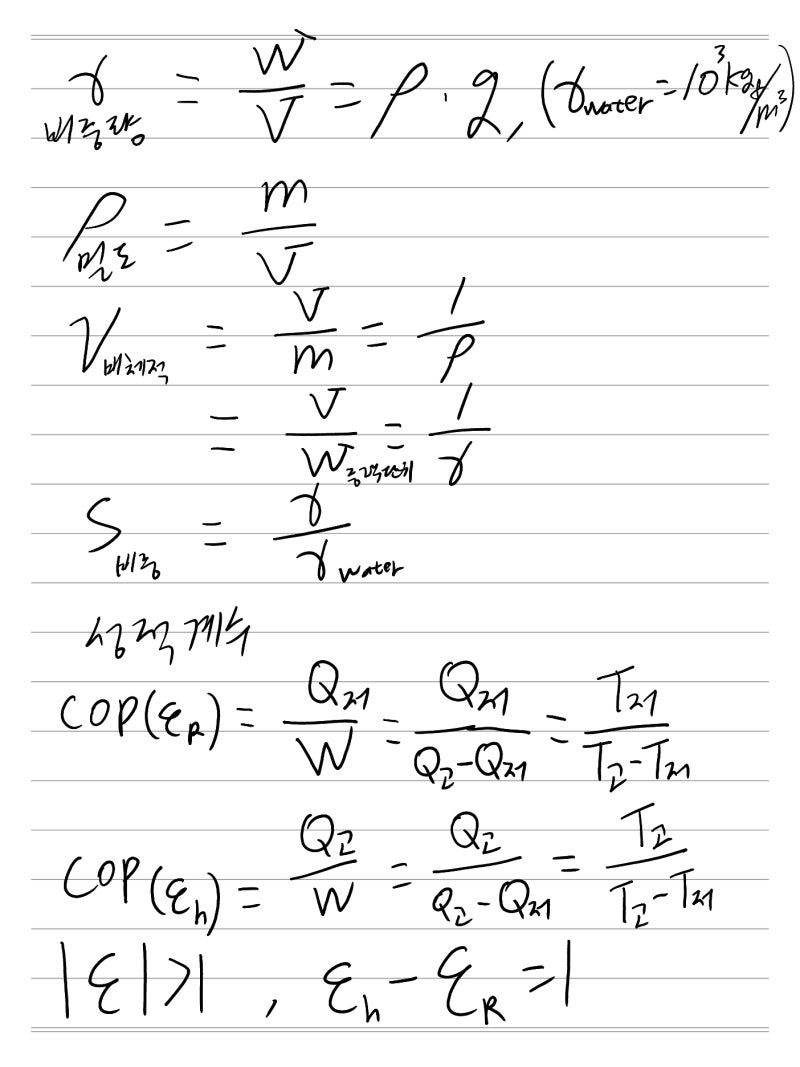 γ비중량 = W/V = ρ · g, (γwater = 10³kgf/m³)
ρ밀도 = m/V
V비체적 = V/m = 1/ρ
= V/W중력단위 = 1/γ
S비중 = γ/γwater
성적계수
COP(ε_R) = Q저/W = Q저/(Q고-Q저) = T저/(T고-T저)
COP(ε_h) = Q고/W = Q고/(Q고-Q저) = T고/(T고-T저)
|ε|>1 , ε_h - ε_R = 1